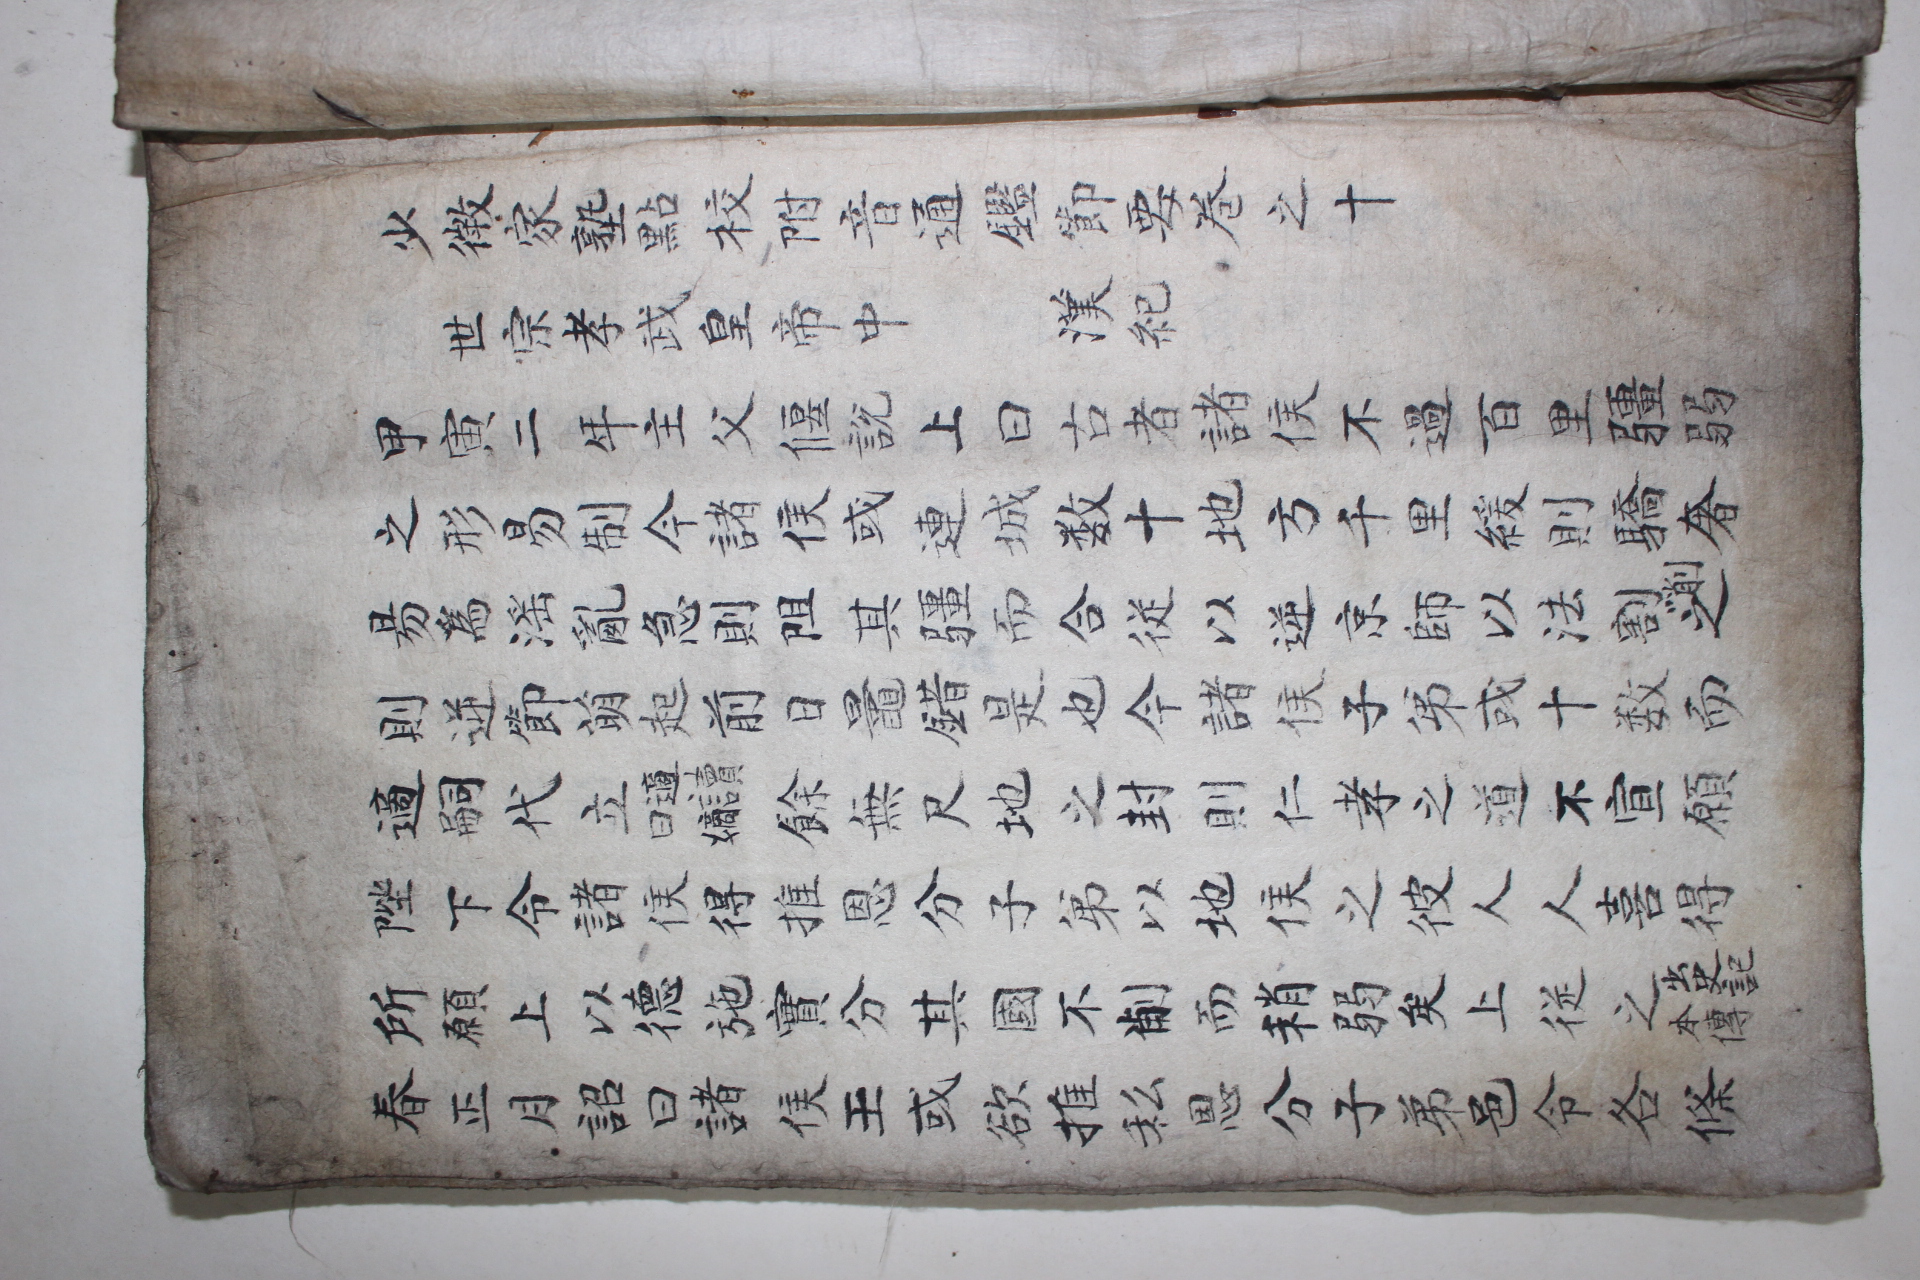 少微家塾點校附音通鑑節要卷之十
世宗孝武皇帝中 漢紀
甲寅二年主父偃說上曰古者諸侯不過百里彊弱
之形易制今諸侯或連城数十地方千里緩則驕奢
易為淫亂急則阻其彊而合從以逆京師以法割削之
則逆節萌起前日鼂錯是也今諸侯子弟或十数而
適嗣代立適讀曰嫡餘無尺地之封則仁孝之道不宣願
陛下令諸侯得推恩分子弟以地侯之彼人人喜得
所願上以德施實分其國不削而稍弱矣上從之出史記本傳
春正月詔曰諸侯王或欲推私恩分子弟邑令各條